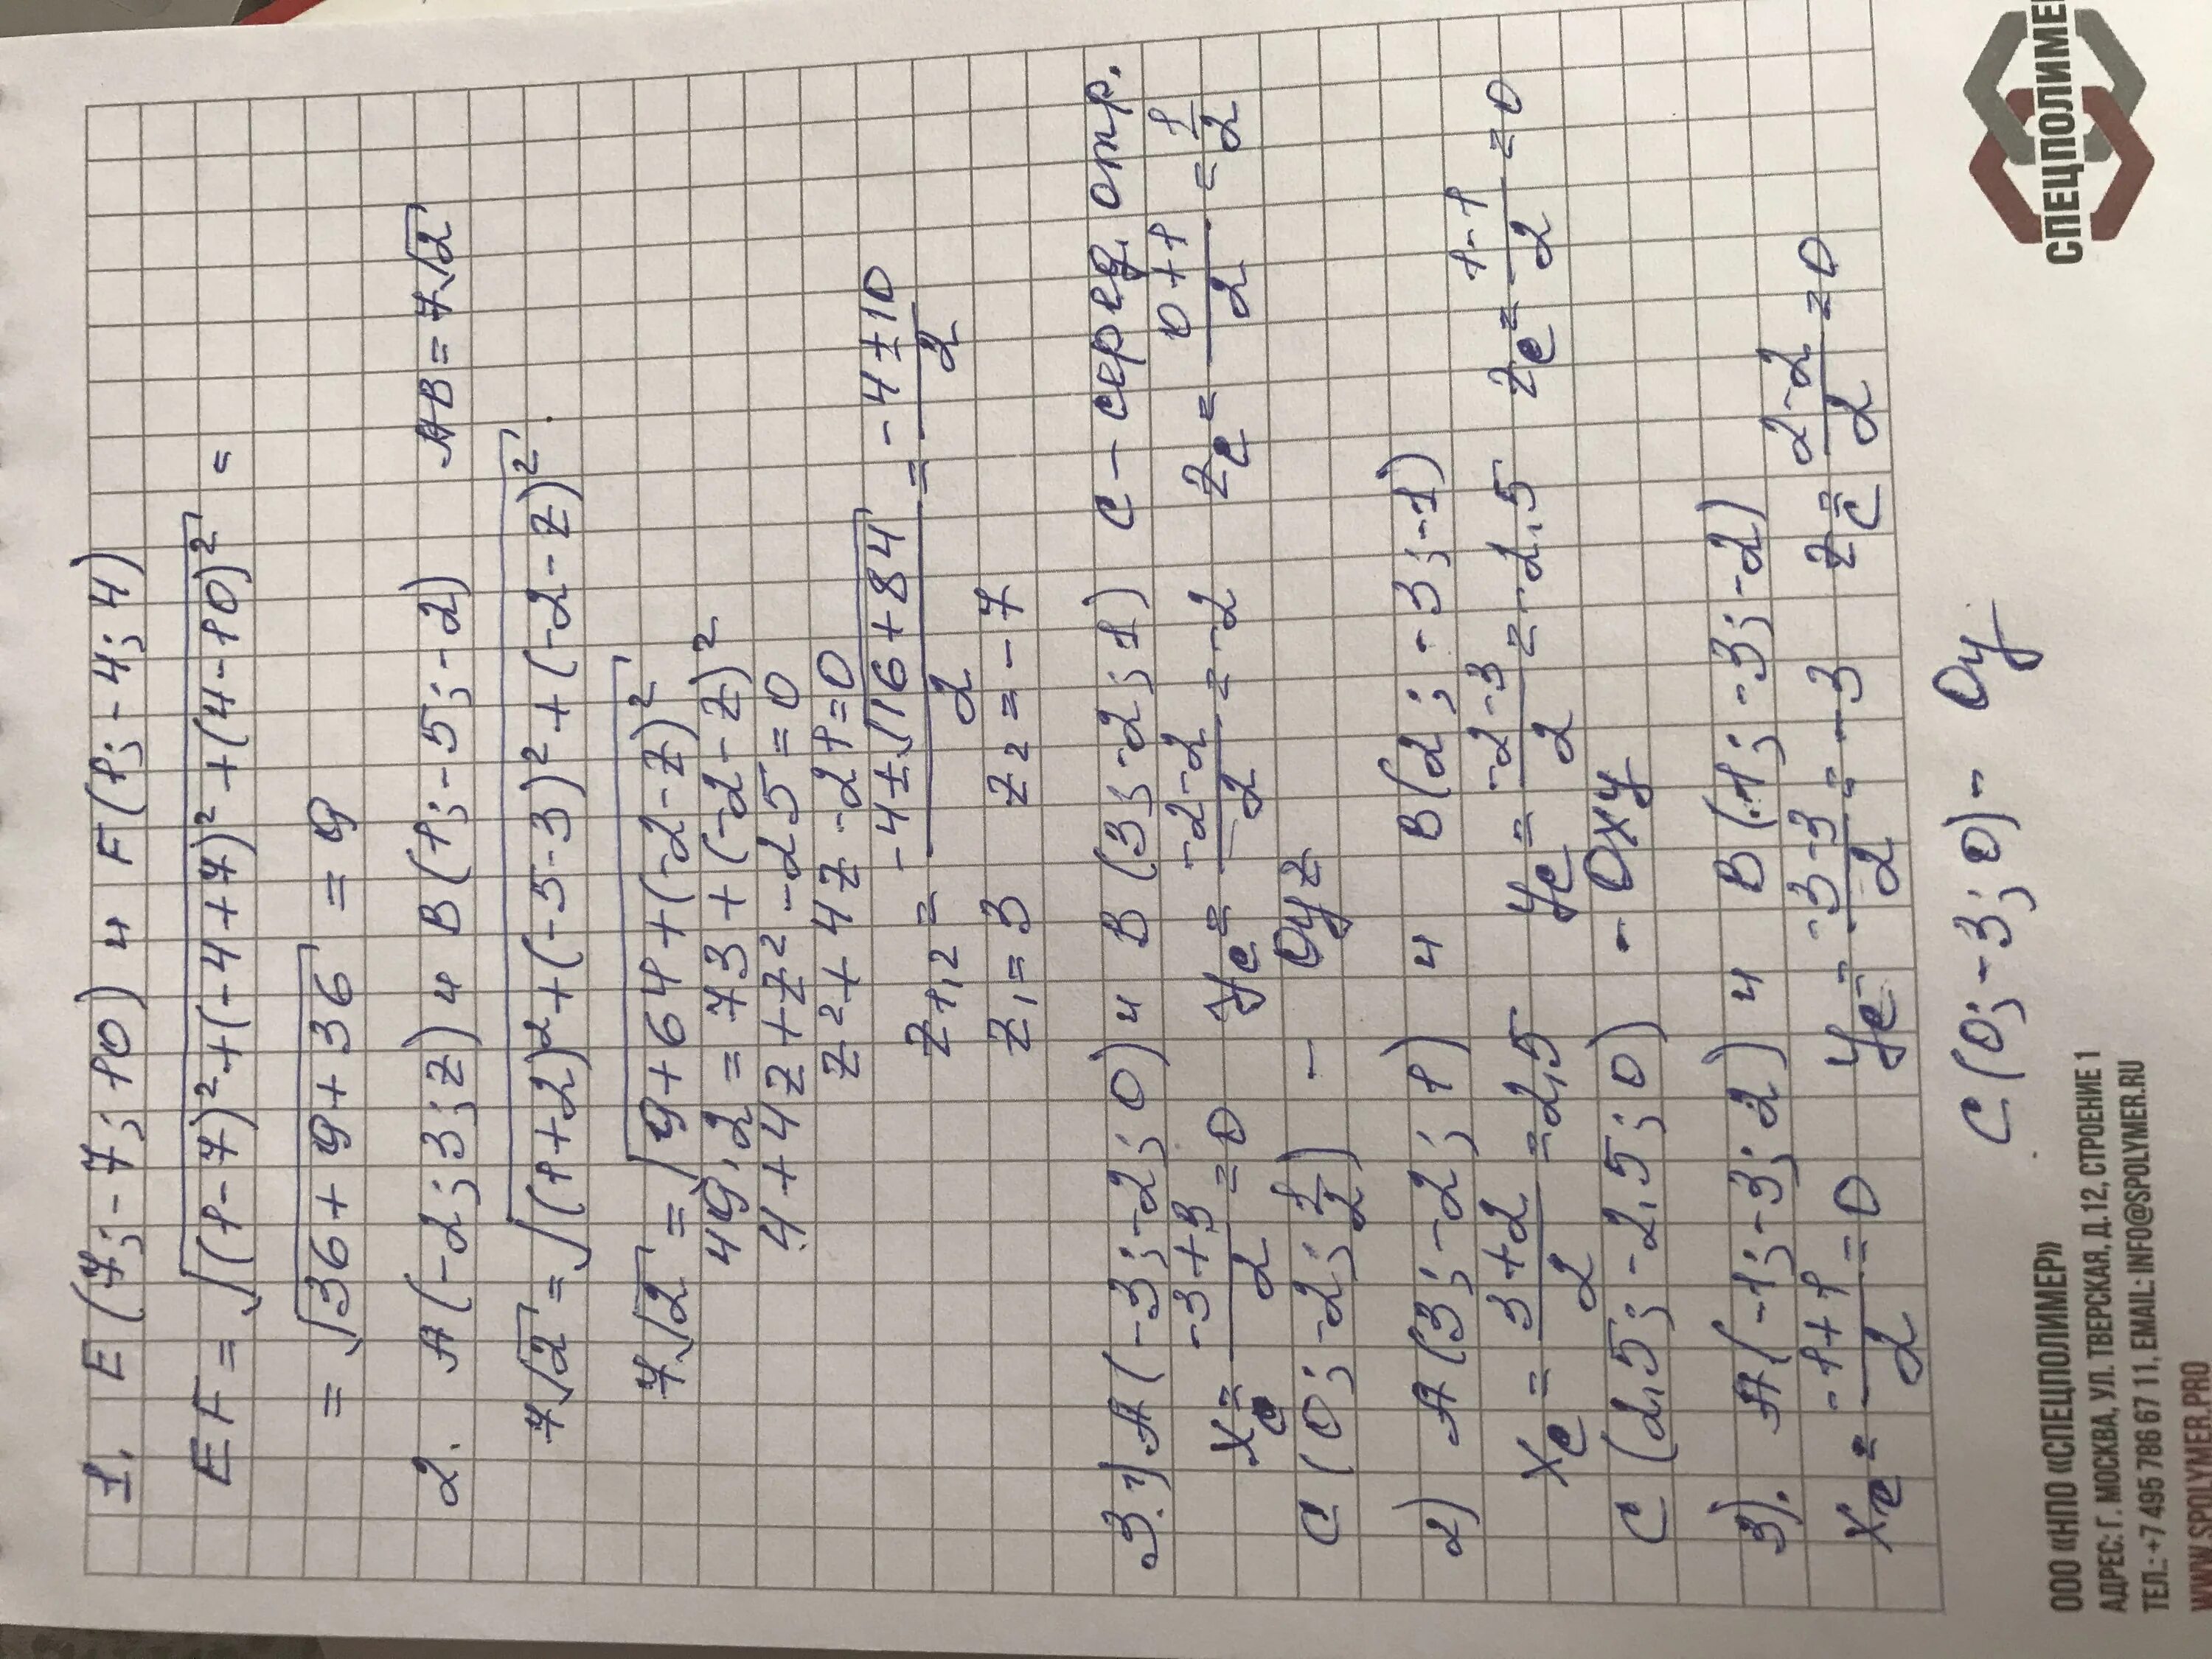 1. E(7;-7;10) и F(1;-4;4)
EF = √(1-7)² + (-4+7)² + (4-10)² =
= √36+9+36 = 9
2. A(-2;3;z) и B(1;-5;-2) AB = 7√2
7√2 = √(1+2)² + (-5-3)² + (-2-z)².
7√2 = √9+64+(-2-z)²
49·2 = 73+(-2-z)²
4+4z+z²-25=0
z²+4z-21=0
z₁,₂ = -4±√16+84/2 = -4±10/2
z₁=3 z₂=-7
3.1) A(-3;-2;0) и B(3;-2;1) C - серед. отр.
xc = -3+3/2 = 0 yc = -2-2/2 = -2 zc = 0+1/2 = 1/2
C(0;-2;1/2) - Oyz
2) A(3;-2;1) и B(2;-3;-1)
xc = 3+2/2 = 2,5 yc = -2-3/2 = -2,5 zc = 1-1/2 = 0
C(2,5;-2,5;0) - Oxy
3). A(-1;-3;2) и B(1;-3;-2)
xc = -1+1/2 = 0 yc = -3-3/2 = -3 zc = 2-2/2 = 0
C(0;-3;0) - Oy
СПЕЦПОЛИМЕР
ООО «НПО «СПЕЦПОЛИМЕР»
АДРЕС: Г. МОСКВА, УЛ. ТВЕРСКАЯ, Д. 12, СТРОЕНИЕ 1
ТЕЛ.: +7 495 786 67 11, EMAIL: INFO@SPOLYMER.RU
WWW.SPOLYMER.PRO